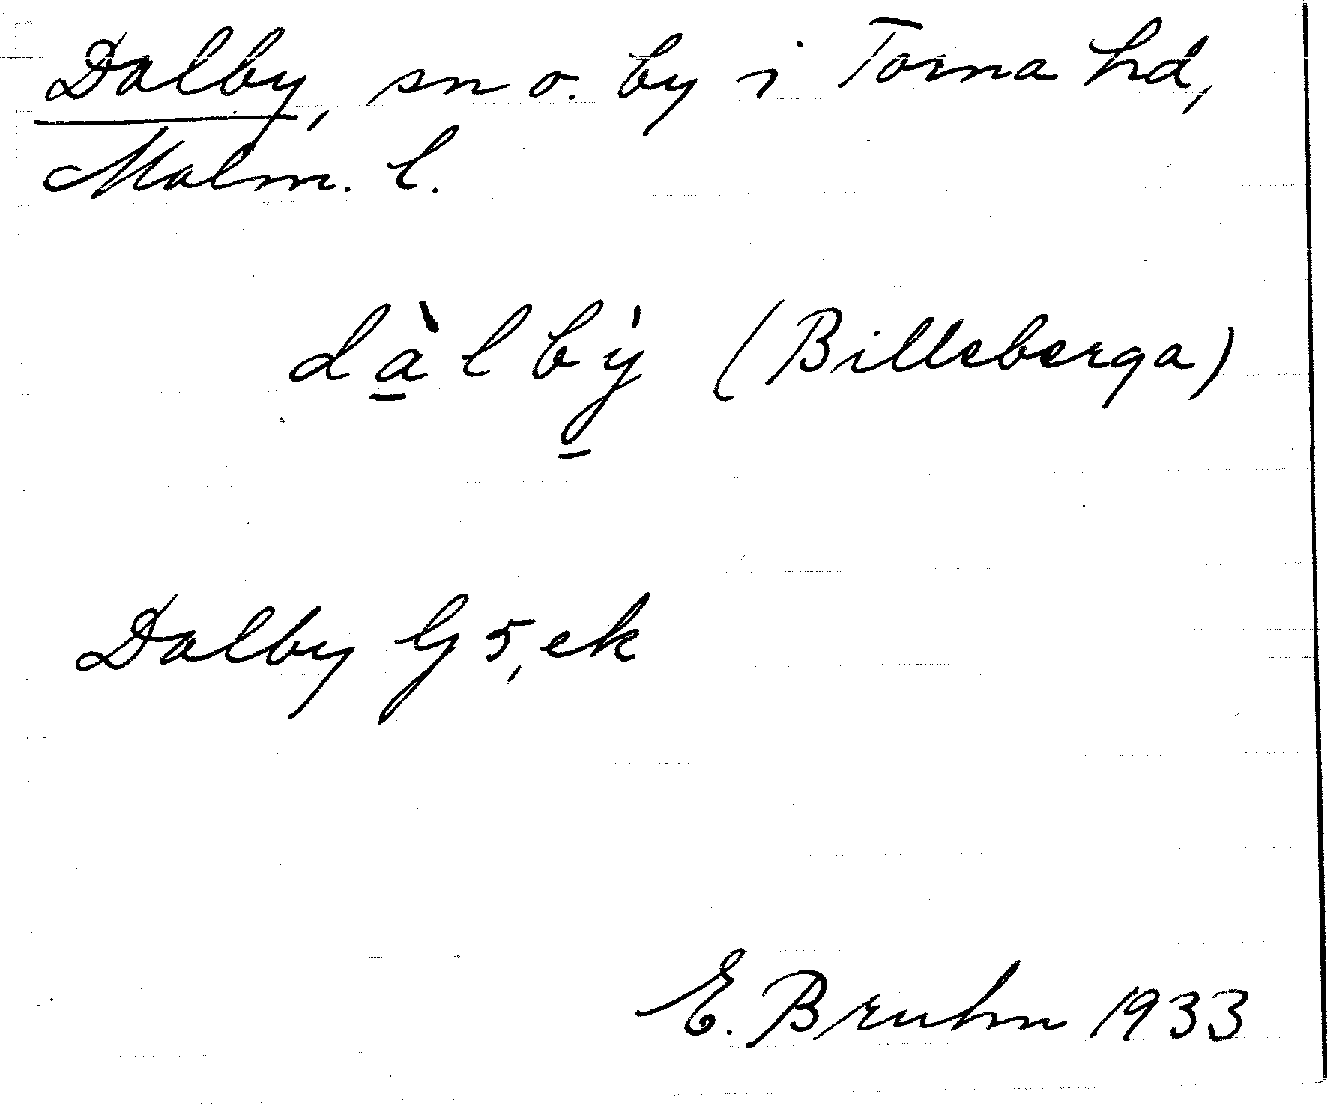 Dalby, sn o. by i Torna hd,
Malm. l.
dàlbẏ (Billeberga)
Dalby G 5, ek
E. Bruhn 1933